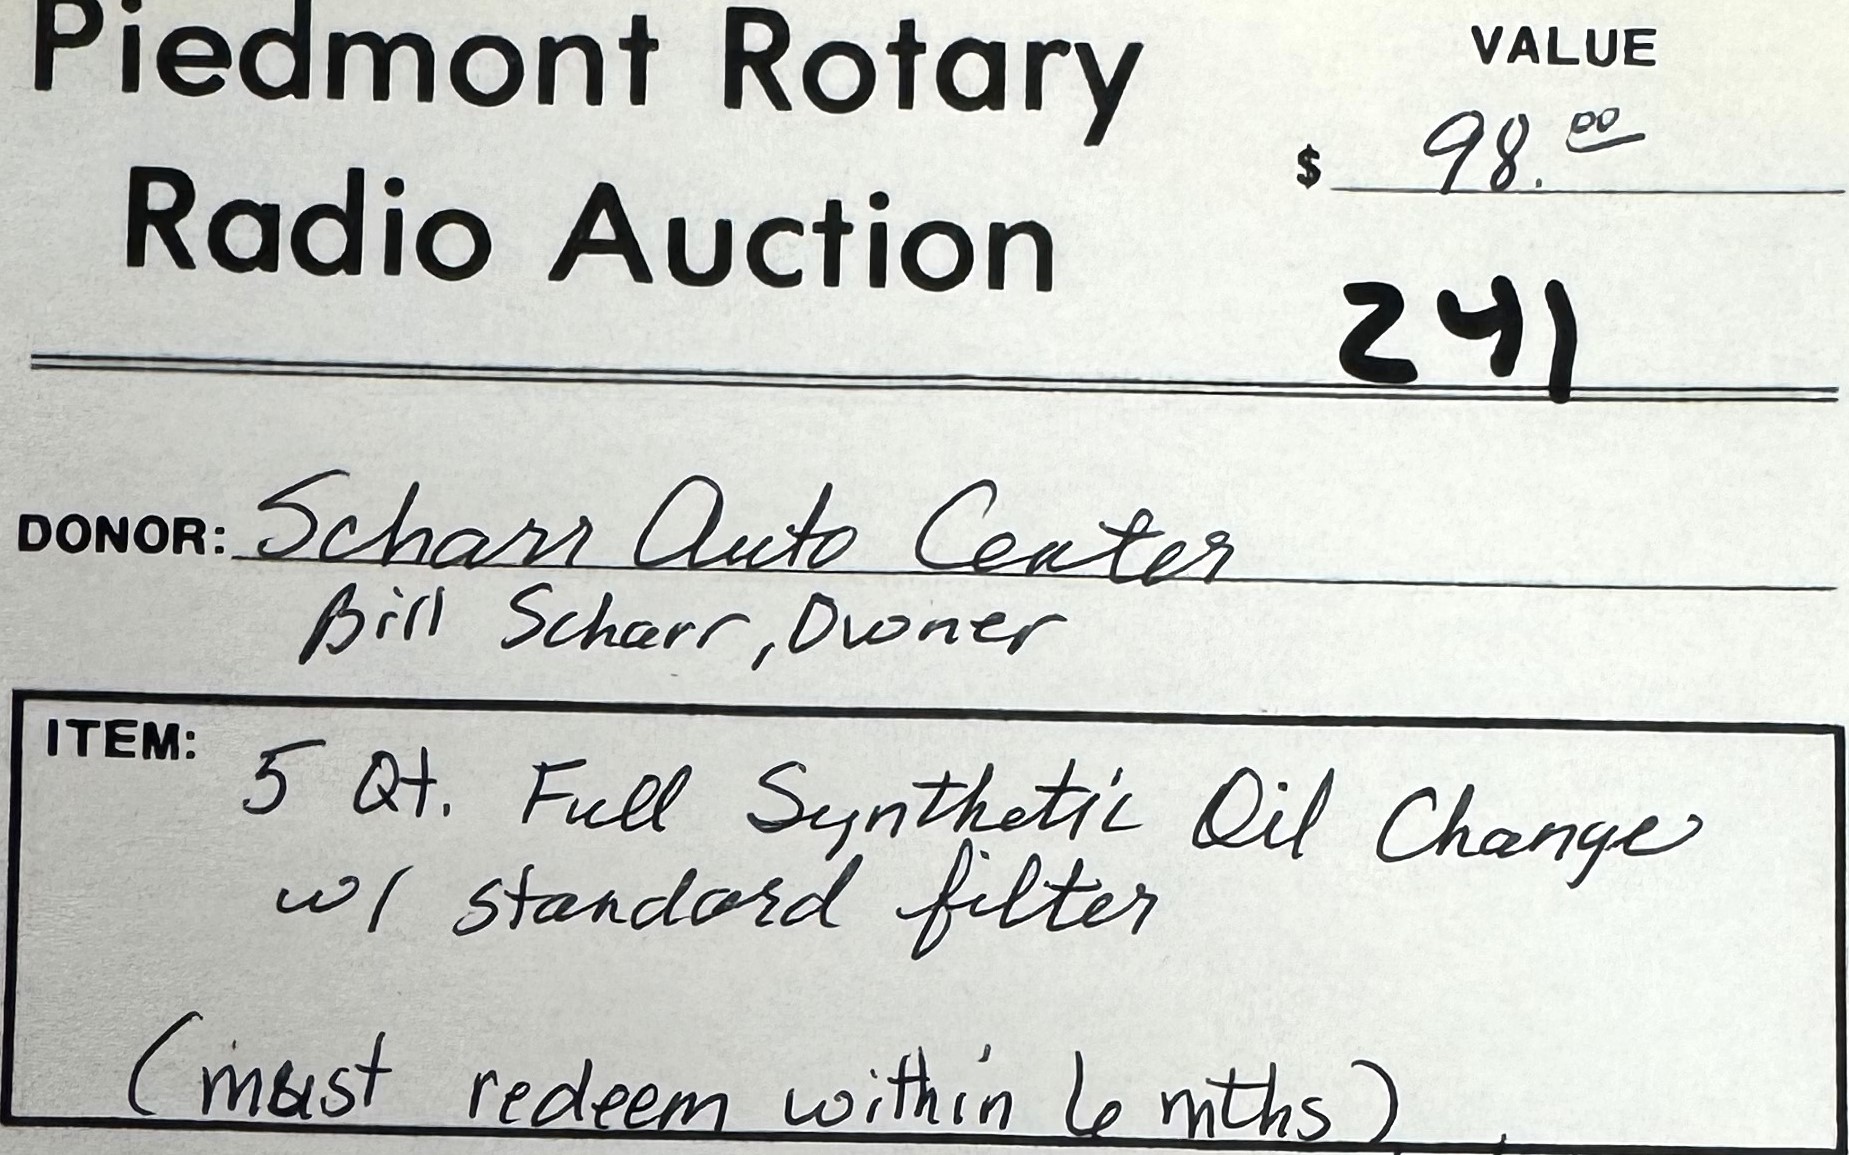 Piedmont Rotary
Radio Auction
VALUE
$ 98.00
241
DONOR: Scharr Auto Center
Bill Scharr, Owner
ITEM: 5 Qt. Full Synthetic Oil Change
w/ standard filter
(must redeem within 6 mths)